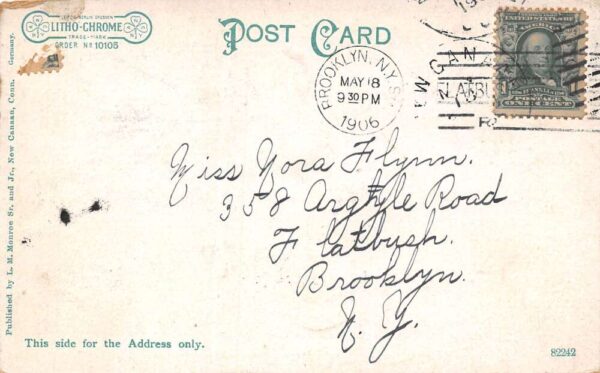 LEIPZIG-BERLIN-DRESDEN
LITHO-CHROME
TRADE-MARK
ORDER No 10105
Germany.
POST CARD
BROOKLYN, N.Y.
MAY 18
9 30 PM
1906
UNITED STATES OF
POSTAGE
ONE CENT
Miss Nora Flynn.
358 Argyle Road
Flatbush.
Brooklyn.
N. Y.
Published by L. M. Monroe Sr. and Jr., New Canaan, Conn.
This side for the Address only.
82242